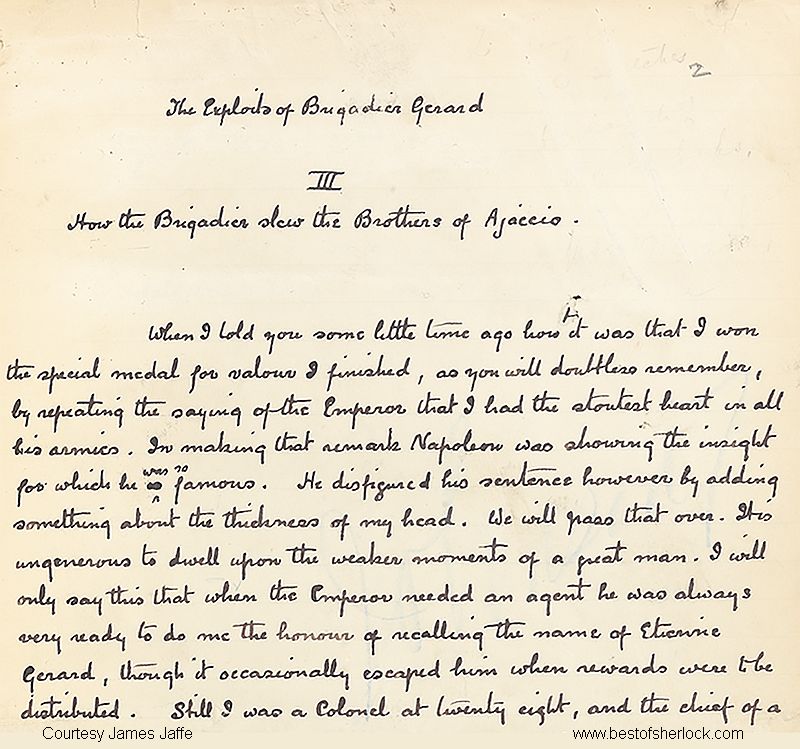 2
The Exploits of Brigadier Gerard
III
How the Brigadier slew the Brothers of Ajaccio.
When I told you some little time ago how it was that I won
the special medal for valour I finished, as you will doubtless remember,
by repeating the saying of the Emperor that I had the stoutest heart in all
his armies. In making that remark Napoleon was showing the insight
for which he was so famous. He disfigured his sentence however by adding
something about the thickness of my head. We will pass that over. It is
ungenerous to dwell upon the weaker moments of a great man. I will
only say this that when the Emperor needed an agent he was always
very ready to do me the honour of recalling the name of Etienne
Gerard, though it occasionally escaped him when rewards were to be
distributed. Still I was a Colonel at twenty eight, and the chief of a
Courtesy James Jaffe
www.bestofsherlock.com